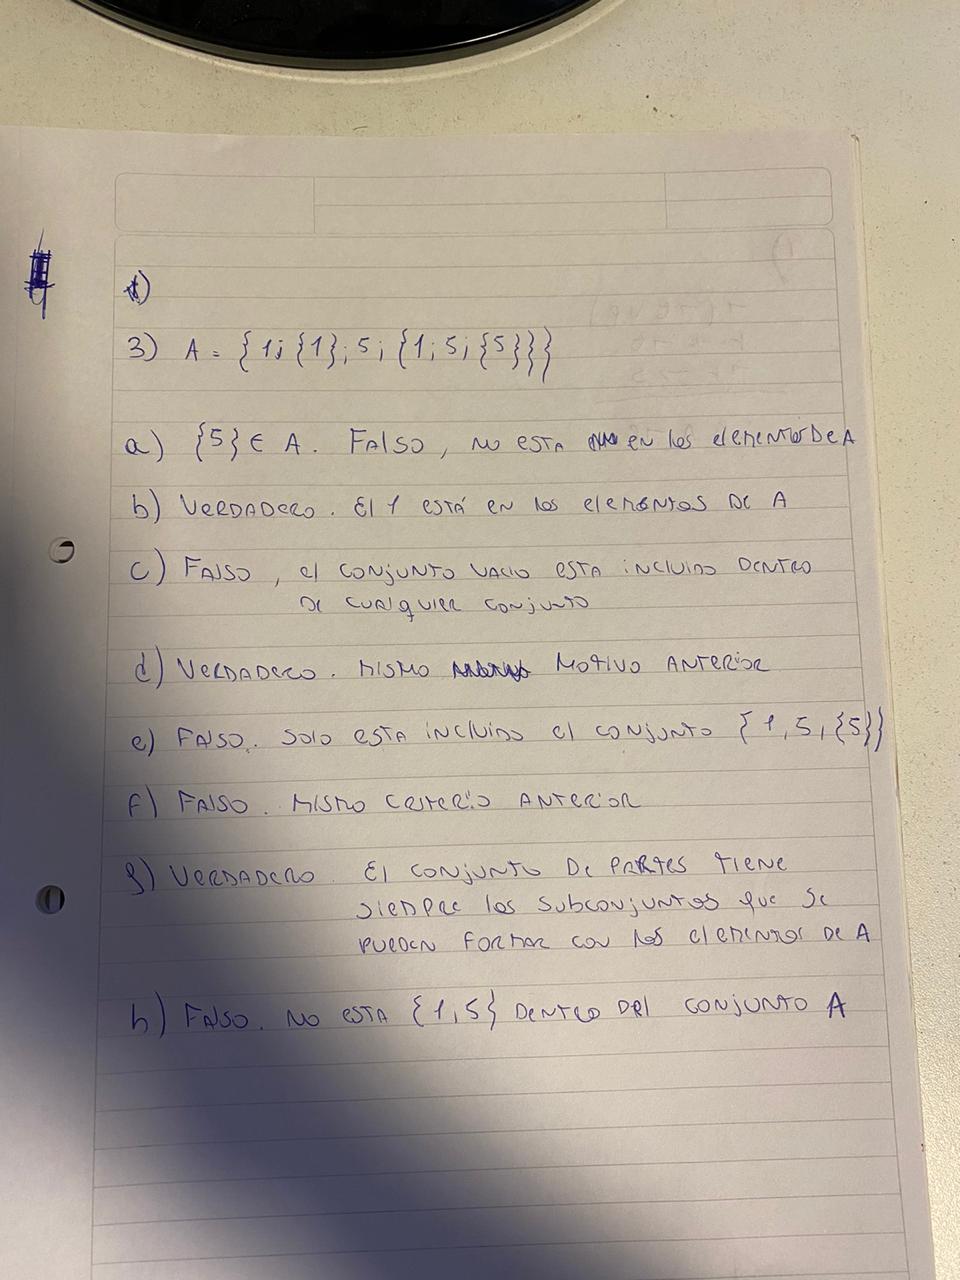 3) A = {1; {1}; 5; {1; 5; {5}}}
a) {5} ∈ A. Falso, no esta en los elementos de A
b) Verdadero. El 1 está en los elementos de A
c) Falso, el conjunto vacio esta incluido dentro
de cualquier conjunto
d) Verdadero. Mismo motivo anterior
e) Falso. Solo esta incluido el conjunto {1, 5, {5}}
f) Falso. Mismo criterio anterior
g) Verdadero. El conjunto de partes tiene
siempre los subconjuntos que se
pueden formar con los elementos de A
h) Falso. No esta {1, 5} dentro del conjunto A